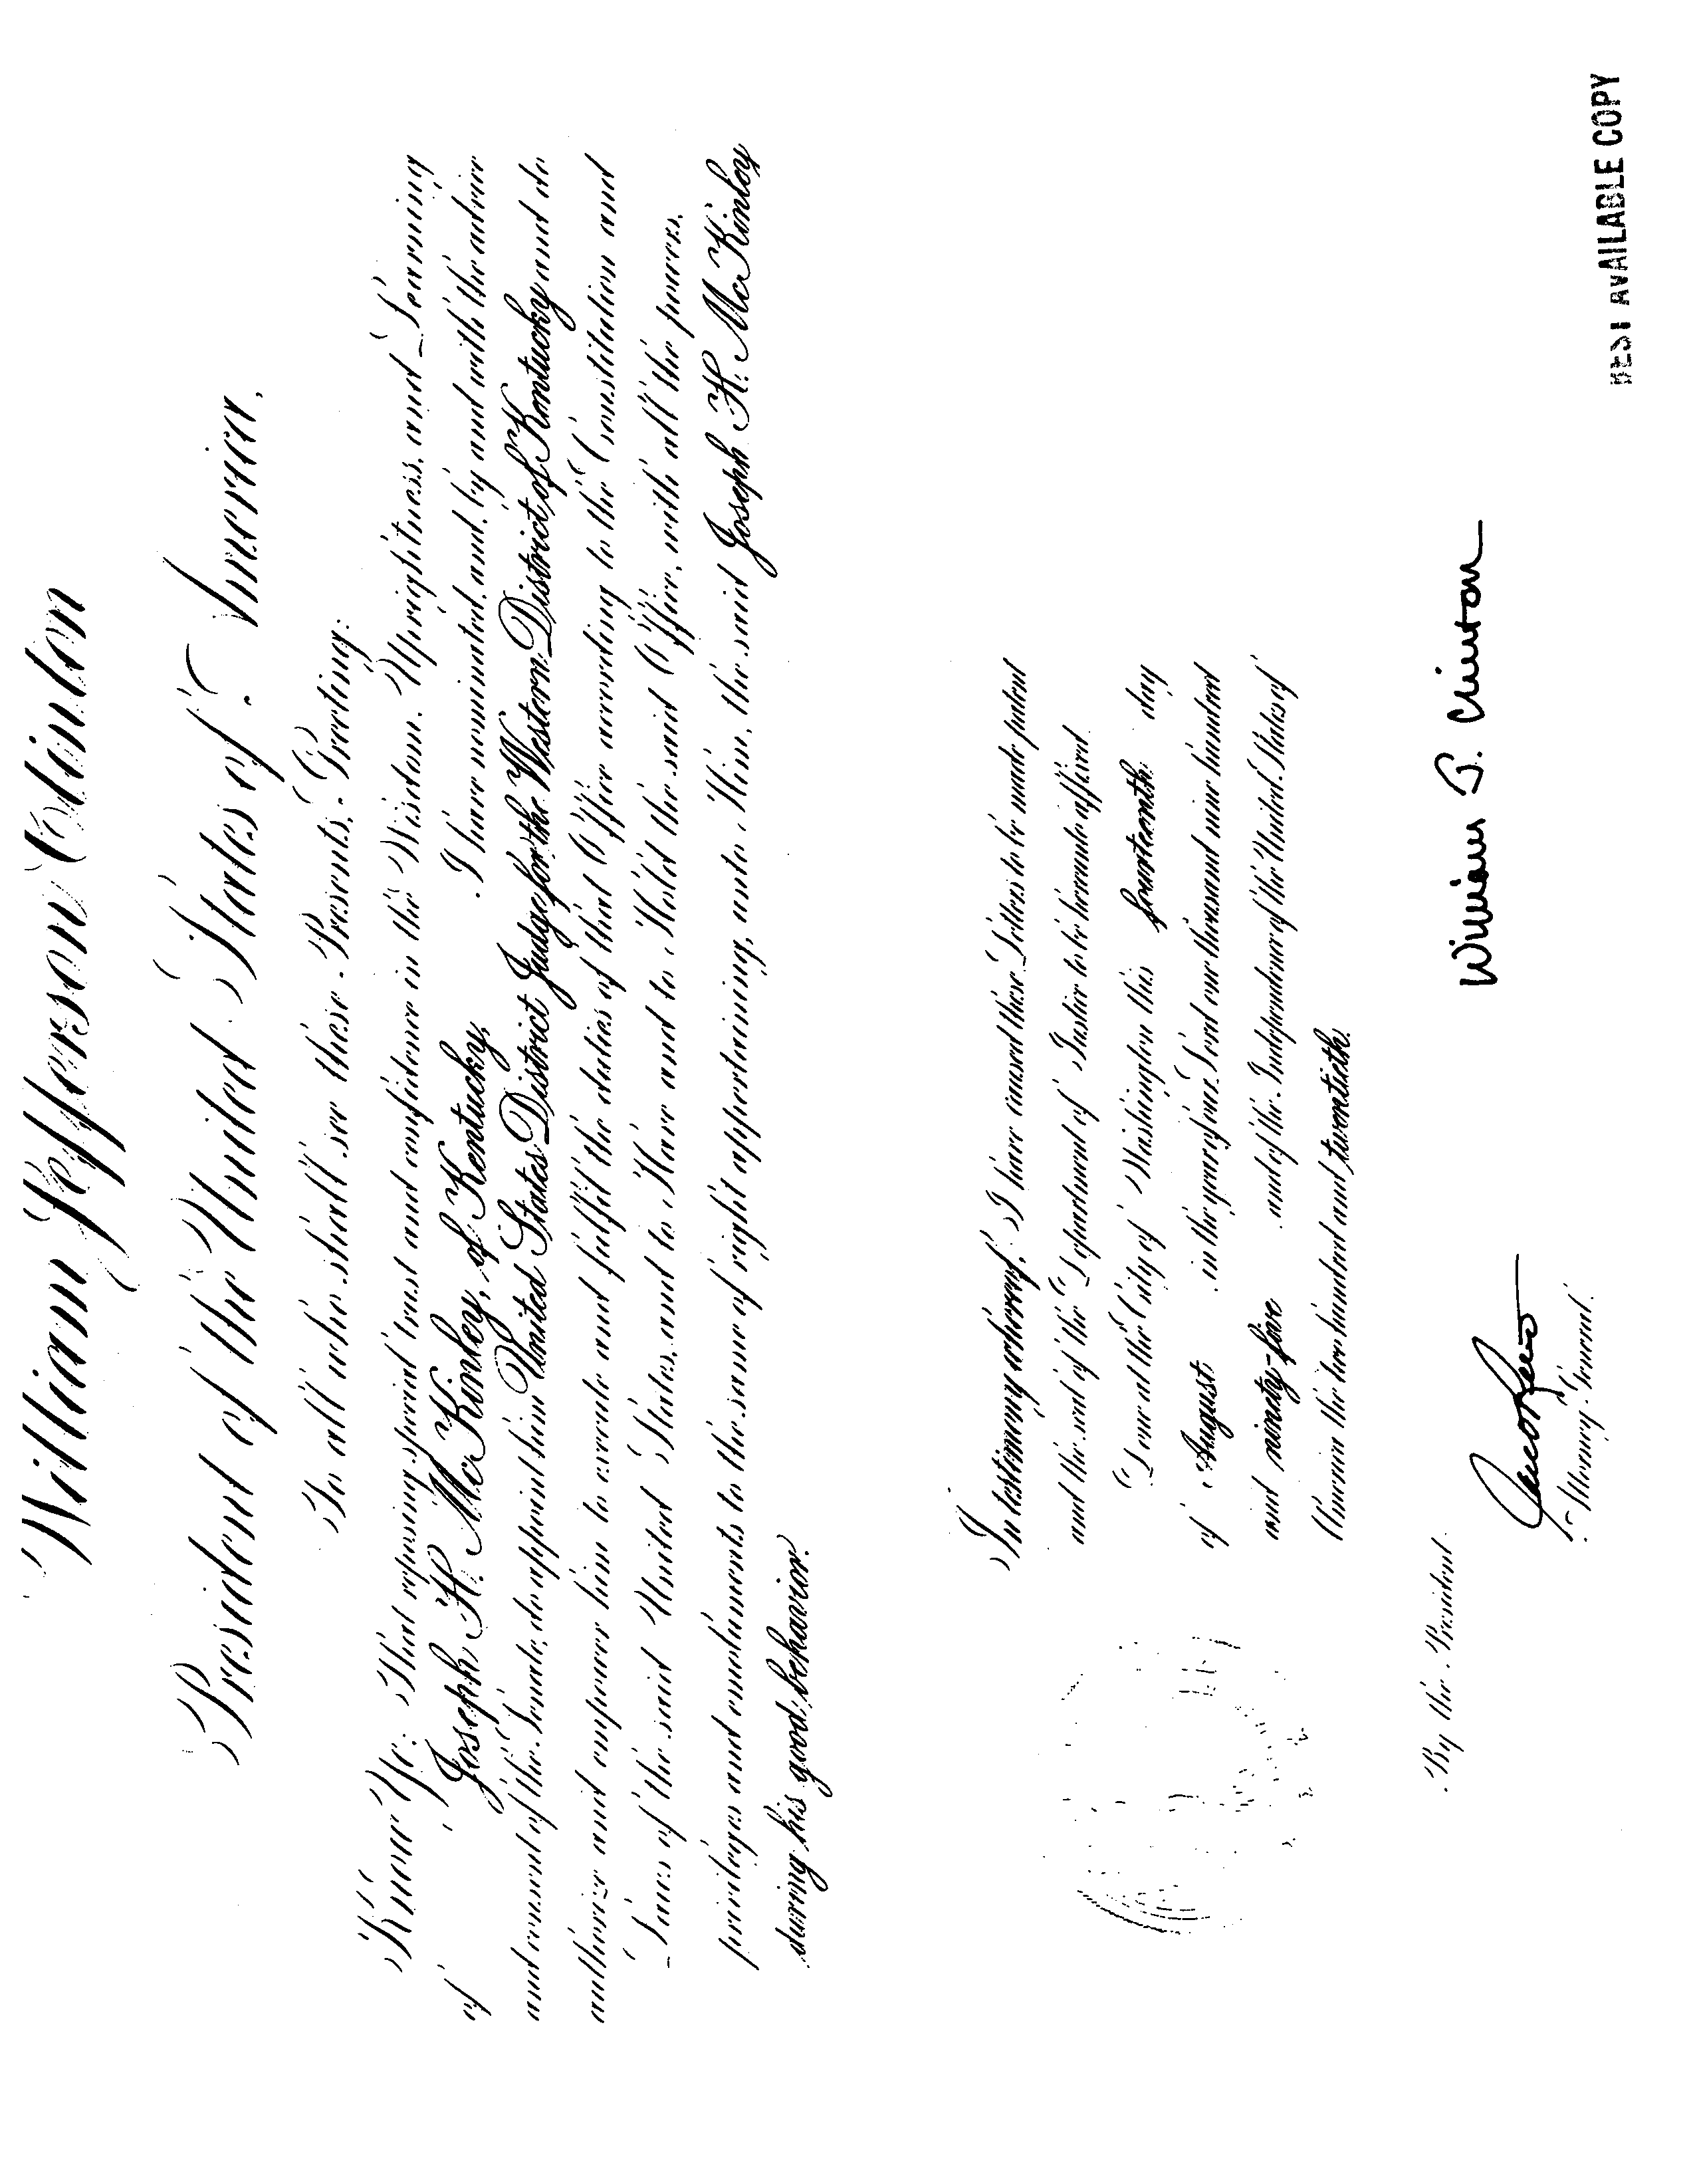 William Jefferson Clinton
President of the United States of America,
To all who shall see these Presents, Greeting:
Know Ye: That reposing special trust and confidence in the Wisdom, Uprightness, and Learning
of Joseph H. McKinley, of Kentucky, I have nominated, and, by and with the advice
and consent of the Senate, do appoint him United States District Judge for the Western District of Kentucky and do
authorize and empower him to execute and fulfil the duties of that Office according to the Constitution and
Laws of the said United States, and to Have and to Hold the said Office, with all the powers,
privileges and emoluments to the same of right appertaining, unto Him, the said Joseph H. McKinley
during his good behavior.
In testimony whereof, I have caused these Letters to be made patent
and the seal of the Department of Justice to be hereunto affixed.
Done at the City of Washington this fourteenth day
of August in the year of our Lord one thousand nine hundred
and ninety-five and of the Independence of the United States of
America the two hundred and twentieth.
William J. Clinton
By the President
Janet Reno
Attorney General.
BEST AVAILABLE COPY